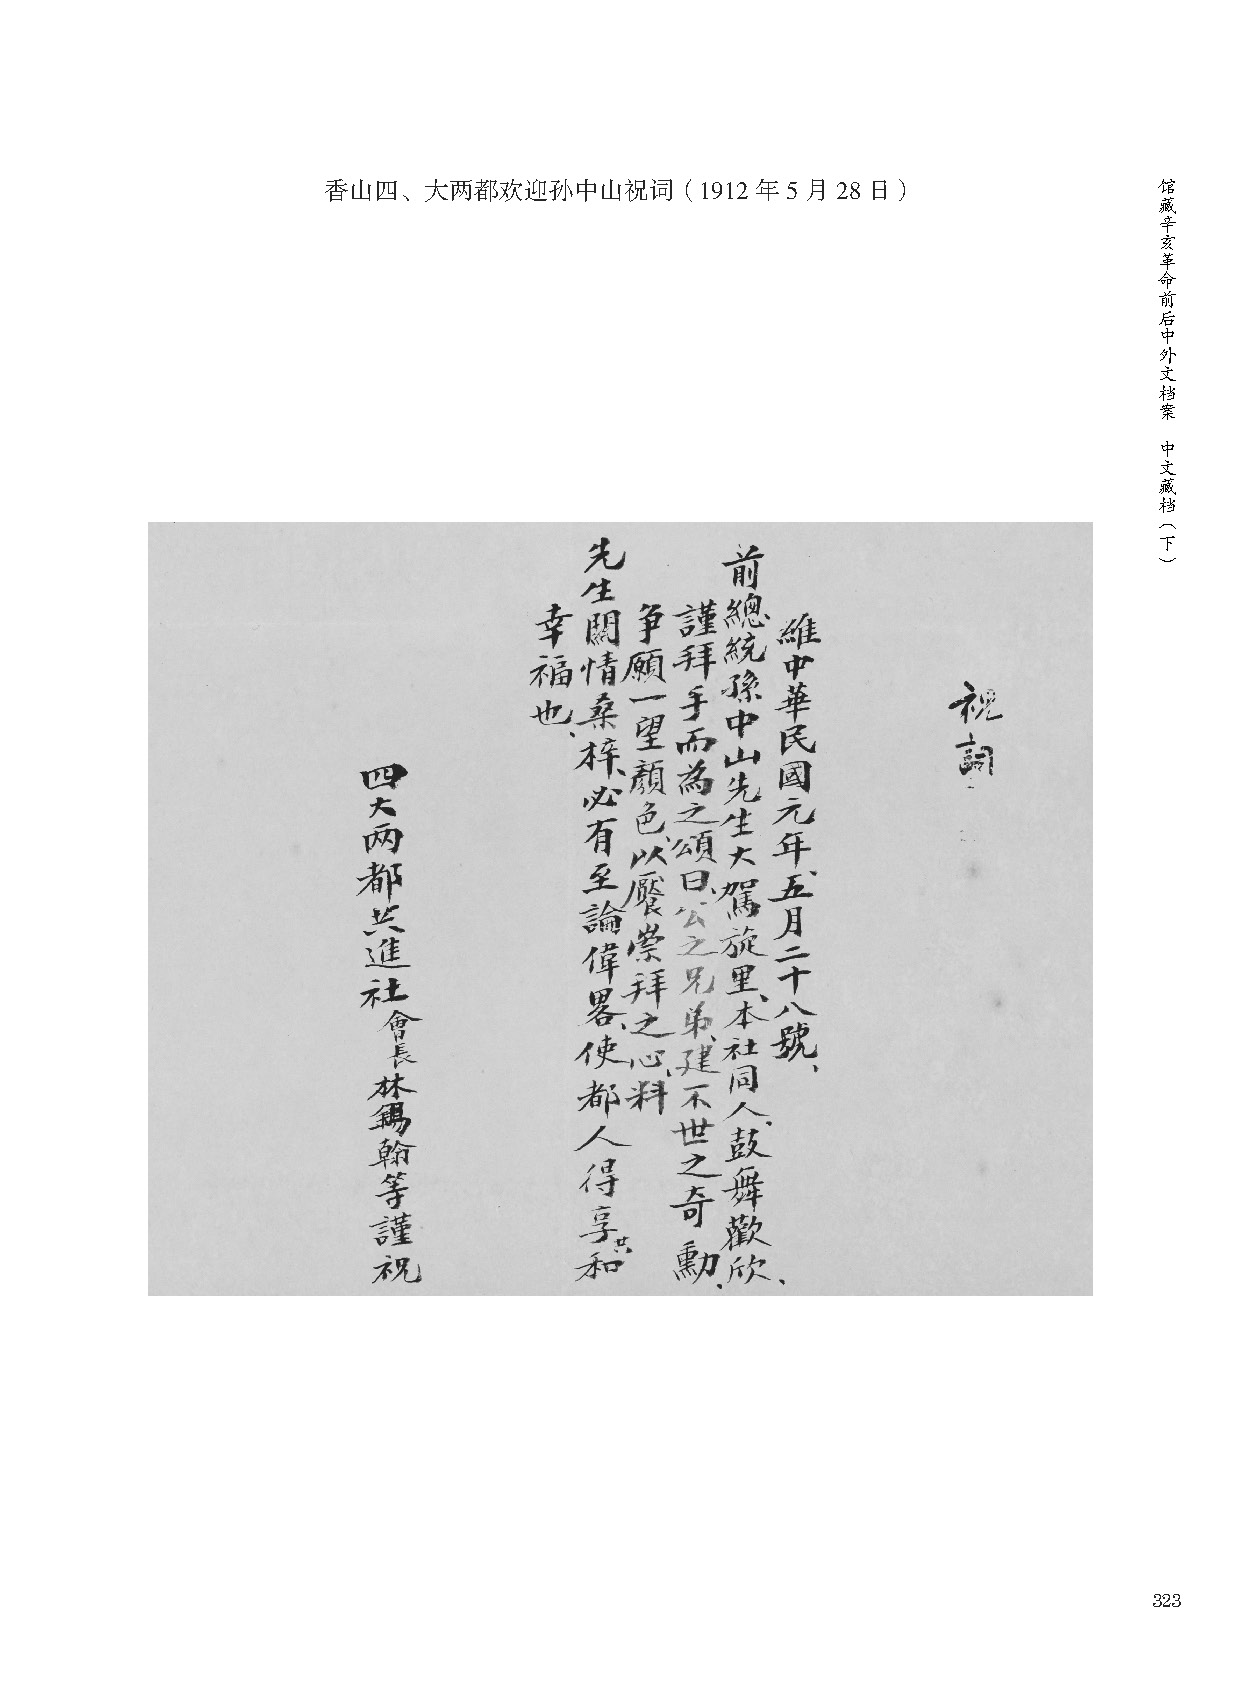 香山四、大两都欢迎孙中山祝词（1912 年 5 月 28 日）
馆藏辛亥革命前后中外文档案　中文藏档（下）
祝詞
維中華民國元年、五月二十八號、
前總統孫中山先生大駕旋里、本社同人、鼓舞歡欣、
謹拜手而為之頌曰、公之兄弟、建不世之奇勳、
争願一望顏色、以饜崇拜之心、料
先生關情桑梓、必有至論偉畧、使都人得享共和
幸福也、
四大两都共進社會長林錫翰等謹祝
323